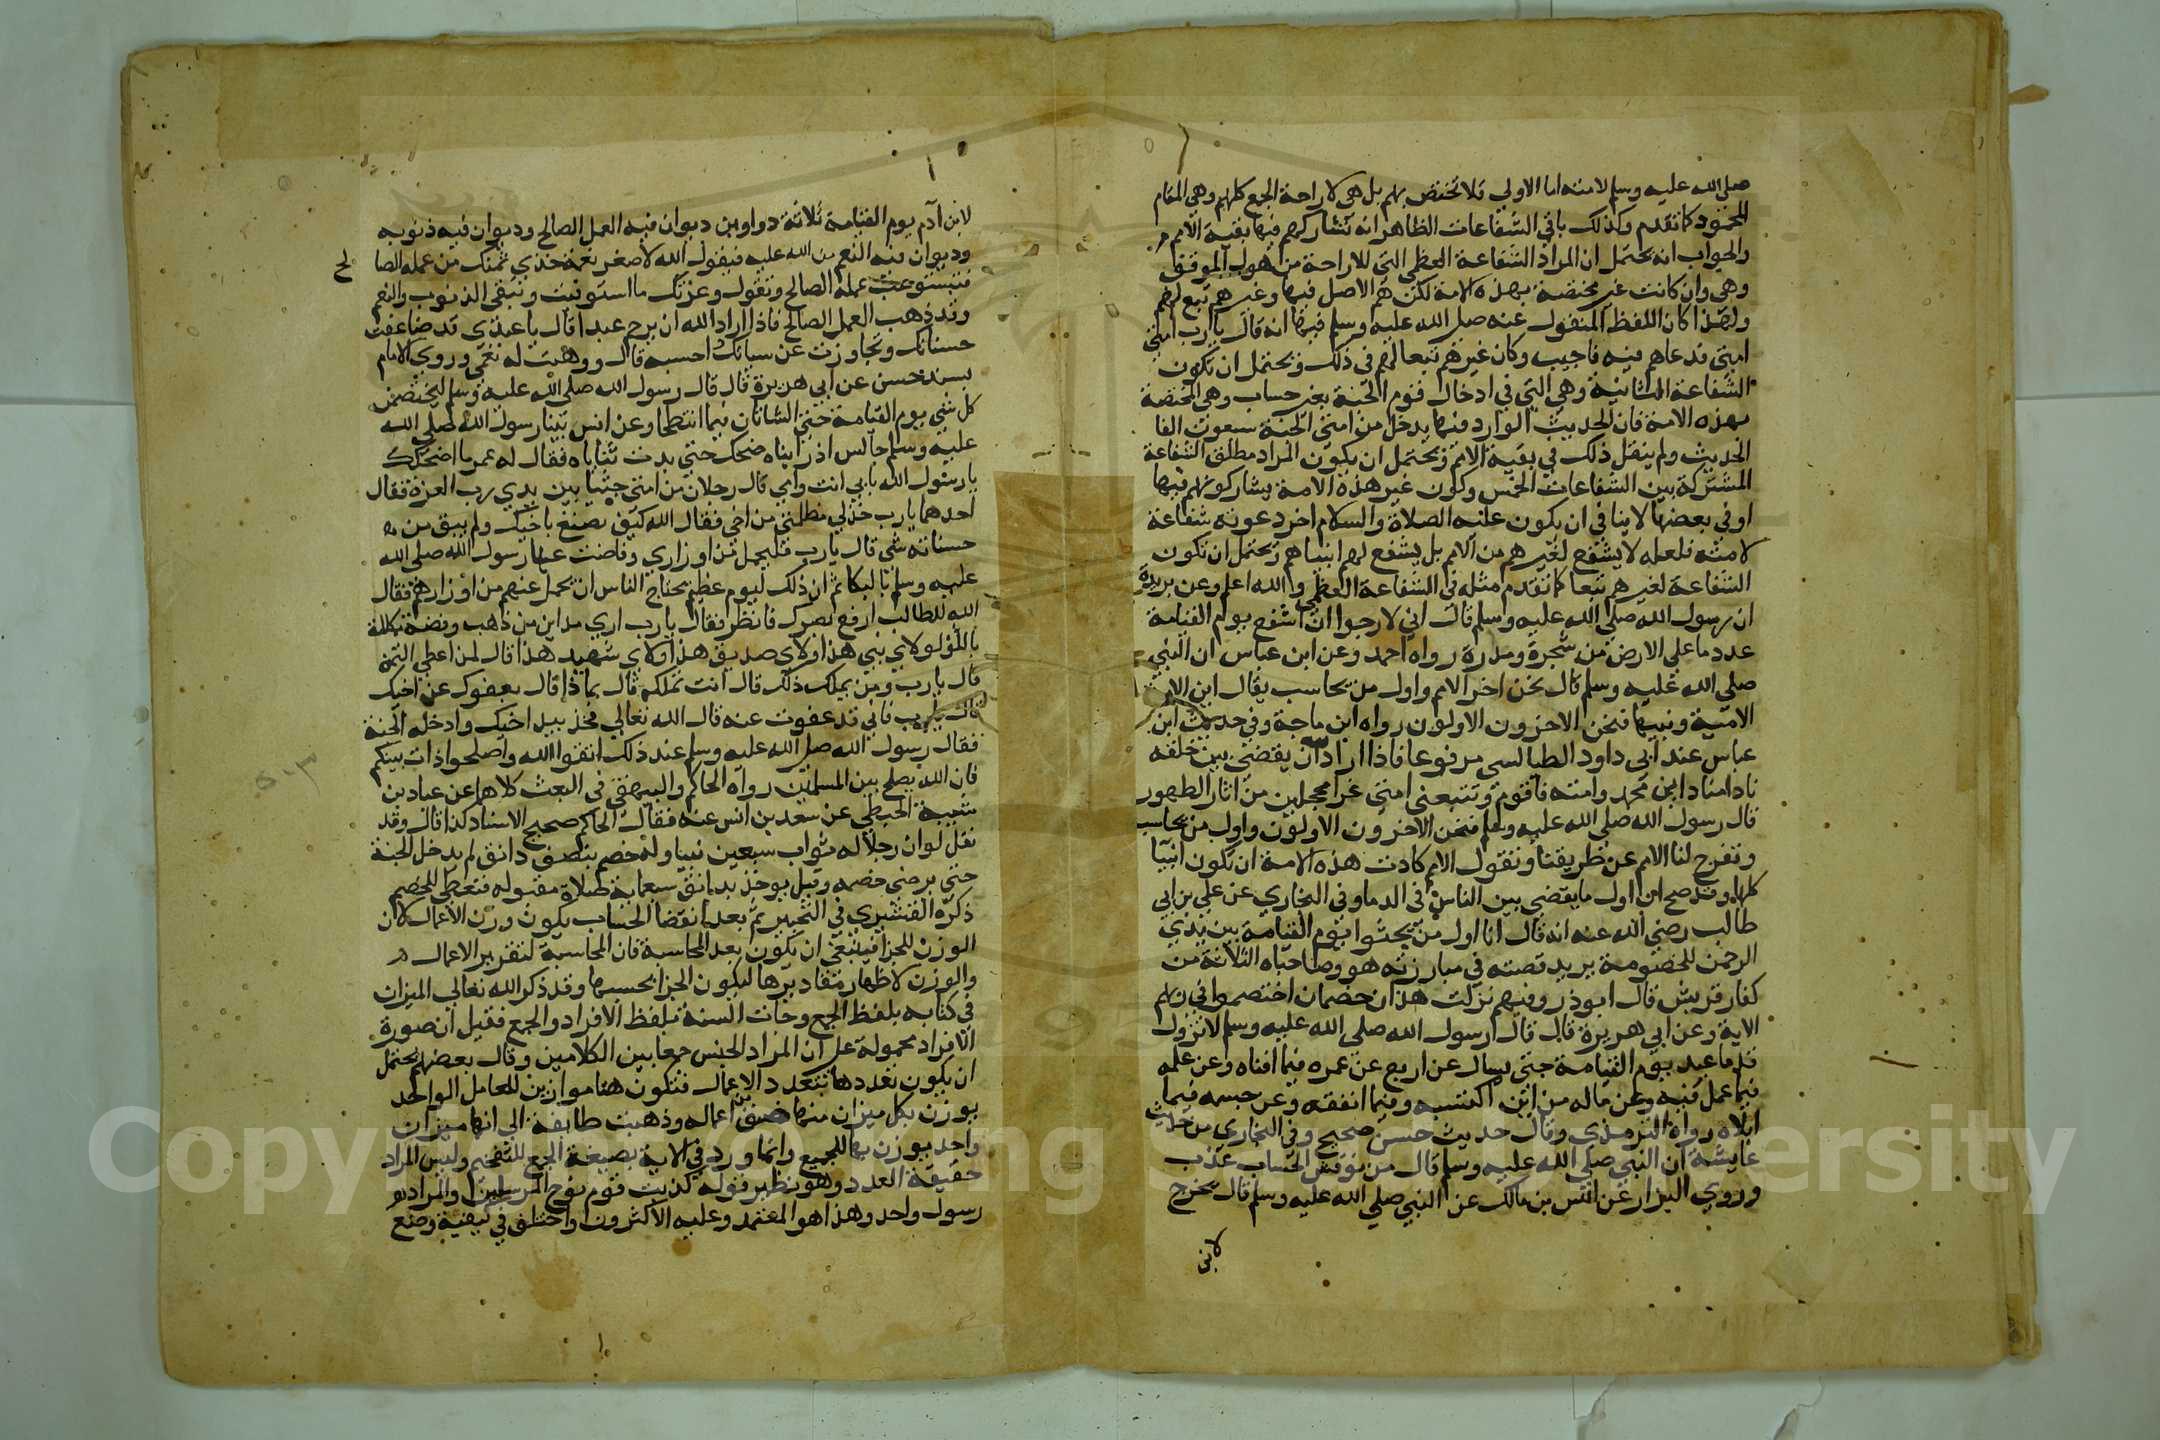 صلى الله عليه وسلم لامته اما الاولى فلا تختص بهم بل هى لاراحة الجمع كلهم وهى المقام
المحمود كما تقدم وكذلك باقى الشفاعات الظاهر انه تشاركهم فيها بقية الامم
والجواب انه يحتمل ان المراد الشفاعة العظمى التى للاراحة من هول الموقف
وهى وان كانت غير مختصة بهذه الامة لكن هم الاصل فيها وغيرهم تبع لهم
ولهذا كان اللفظ المنقول عنه صلى الله عليه وسلم فيها انه قال يا رب امتى
امتى فدعا لهم فيه فاجيب وكان غيرهم تبعا لهم فى ذلك ويحتمل ان تكون
الشفاعة الثانية وهى التى فى ادخال قوم الجنة بغير حساب وهى المختصة
بهذه الامة فان الحديث الوارد فيها يدخل من امتى الجنة سبعون الفا
الحديث ولم ينقل ذلك في بقية الامم ويحتمل ان يكون المراد مطلق الشفاعة
المشتركة بين الشفاعات الخمس وكون غير هذه الامة يشاركونهم فيها
او فى بعضها لا ينافى ان يكون عليه الصلاة والسلام اخر دعوته شفاعة
لامته فلعله لا يشفع لغيرهم من الامم بل يشفع لهم انبياهم ويحتمل ان تكون
الشفاعة لغيرهم تبعا كما تقدم مثله فى الشفاعة العظمى والله اعلم وعن بريدة
ان رسول الله صلى الله عليه وسلم قال انى لارجوا ان اشفع يوم القيامة
عدد ما على الارض من شجرة ومدرة رواه احمد وعن ابن عباس ان النبي
صلى الله عليه وسلم قال نحن اخر الامم واول من يحاسب يقال اين الامة
الامية ونبيها فنحن الاخرون الاولون رواه ابن ماجة وفى حديث ابن
عباس عند ابى داود الطيالسي مرفوعا فاذا اراد الله ان يقضى بين خلقه
نادا مناد اين محمد وامته فاقوم وتتبعنى امتى غرا محجلين من اثار الطهور
قال رسول الله صلى الله عليه وسلم فنحن الاخرون الاولون واول من يحاسب
وتفرج لنا الامم عن طريقنا وتقول الامم كادت هذه الامة ان تكون انبيا
كلها وقد صح ان اول ما يقضى بين الناس فى الدما وفى البخاري عن علي بن ابي
طالب رضى الله عنه انه قال انا اول من يجثوا يوم القيامة بين يدي
الرحمن للخصومة يريد قصته في مبارزته هو وصاحباه الثلاثة من
كفار قريش قال ابو ذر وفيهم نزلت هذان خصمان اختصموا في ربهم
الاية وعن ابى هريرة قال قال رسول الله صلى الله عليه وسلم لا تزول
قدما عبد يوم القيامة حتى يسال عن اربع عن عمره فيما افناه وعن علمه
فيما عمل فيه وعن ماله من اين اكتسبه وفيما انفقه وعن جسمه فيما
ابلاه رواه الترمذى وقال حديث حسن صحيح وفى البخاري من حديث
عايشة ان النبي صلى الله عليه وسلم قال من نوقش الحساب عذب
وروي البزار عن انس بن مالك عن النبي صلى الله عليه وسلم قال يخرج
لابن
لابن آدم يوم القيامة ثلاثة دواوين ديوان فيه العمل الصالح وديوان فيه ذنوبه
وديوان فيه النعم من الله عليه فيقول الله لاصغر نعمة خذي ثمنك من عمله الصا
لح
فتستوعب عمله الصالح وتقول وعزتك ما استوفيت وتبقى الذنوب والنعم
وقد ذهب العمل الصالح فاذا اراد الله ان يرحم عبدا قال يا عبدى قد ضاعفت
حسناتك وتجاوزت عن سياتك احسبه قال ووهبت له نعمى وروي الامام
بسند حسن عن ابى هريرة قال قال رسول الله صلى الله عليه وسلم ليختصمن
كل شي يوم القيامة حتى الشاتان فيما انتطحا وعن انس بينا رسول الله صلى الله
عليه وسلم جالس اذ رايناه ضحك حتى بدت ثناياه فقال له عمر ما اضحكك
يا رسول الله بابى انت وامي قال رجلان من امتى جثيا بين يدي رب العزة فقال
احدهما يا رب خذ لي مظلمتى من اخى فقال الله كيف تصنع باخيك ولم يبق من
حسناته شي قال يا رب فليحمل من اوزاري وفاضت عينا رسول الله صلى الله
عليه وسلم بالبكا ثم ان ذلك ليوم عظيم يحتاج الناس ان يحمل عنهم من اوزارهم فقال
الله للطالب ارفع بصرك فانظر فقال يا رب اري مداين من ذهب وفضة مكللة
باللؤلؤ لاي نبى هذا ولاى صديق هذا ولاي شهيد هذا قال لمن اعطى الثمن
قال يا رب ومن يملك ذلك قال انت تملكه قال بماذا قال بعفوك عن اخيك
قال يا رب فانى قد عفوت عنه قال الله تعالى فخذ بيد اخيك وادخله الجنة
فقال رسول الله صلى الله عليه وسلم عند ذلك اتقوا الله واصلحوا ذات بينكم
فان الله يصلح بين المسلمين رواه الحاكم والبيهقى فى البعث كلاهما عن عباد بن
شيبة الحبطي عن سعد بن انس عنه فقال الحاكم صحيح الاسناد كذا قال وقد
نقل لو ان رجلا له ثواب سبعين نبيا وله خصم بنصف دانق لم يدخل الجنة
حتى يرضى خصمه وقيل يوخذ بدانق سبعماية صلاة مقبوله فتعطى للخصم
ذكره القشيري فى التحبير ثم بعد انقضا الحساب يكون وزن الاعمال لان
الوزن للجزا فينبغى ان يكون بعد المحاسبة فان المحاسبة لتقرير الاعمال
والوزن لاظهار مقاديرها ليكون الجزا بحسبها وقد ذكر الله تعالى الميزان
في كتابه بلفظ الجمع وجات السنة بلفظ الافراد والجمع فقيل ان صورة
الافراد محمولة على ان المراد الجنس جمعا بين الكلامين وقال بعضهم يحتمل
ان يكون تعددها بتعدد الاعمال فتكون هنا موازين للعامل الواحد
يوزن بكل ميزان منها صنف من اعماله وذهبت طايفة الى انها ميزان
واحد يوزن بها للجميع وانما ورد في الاية بصيغة الجمع للتفخيم وليس المراد
حقيقة العدد وهو نظير قوله كذبت قوم نوح المرسلين والمراد
رسول واحد وهذا هو المعتمد وعليه الاكثرون واختلف في كيفية وضع
Copyright © King Saud University